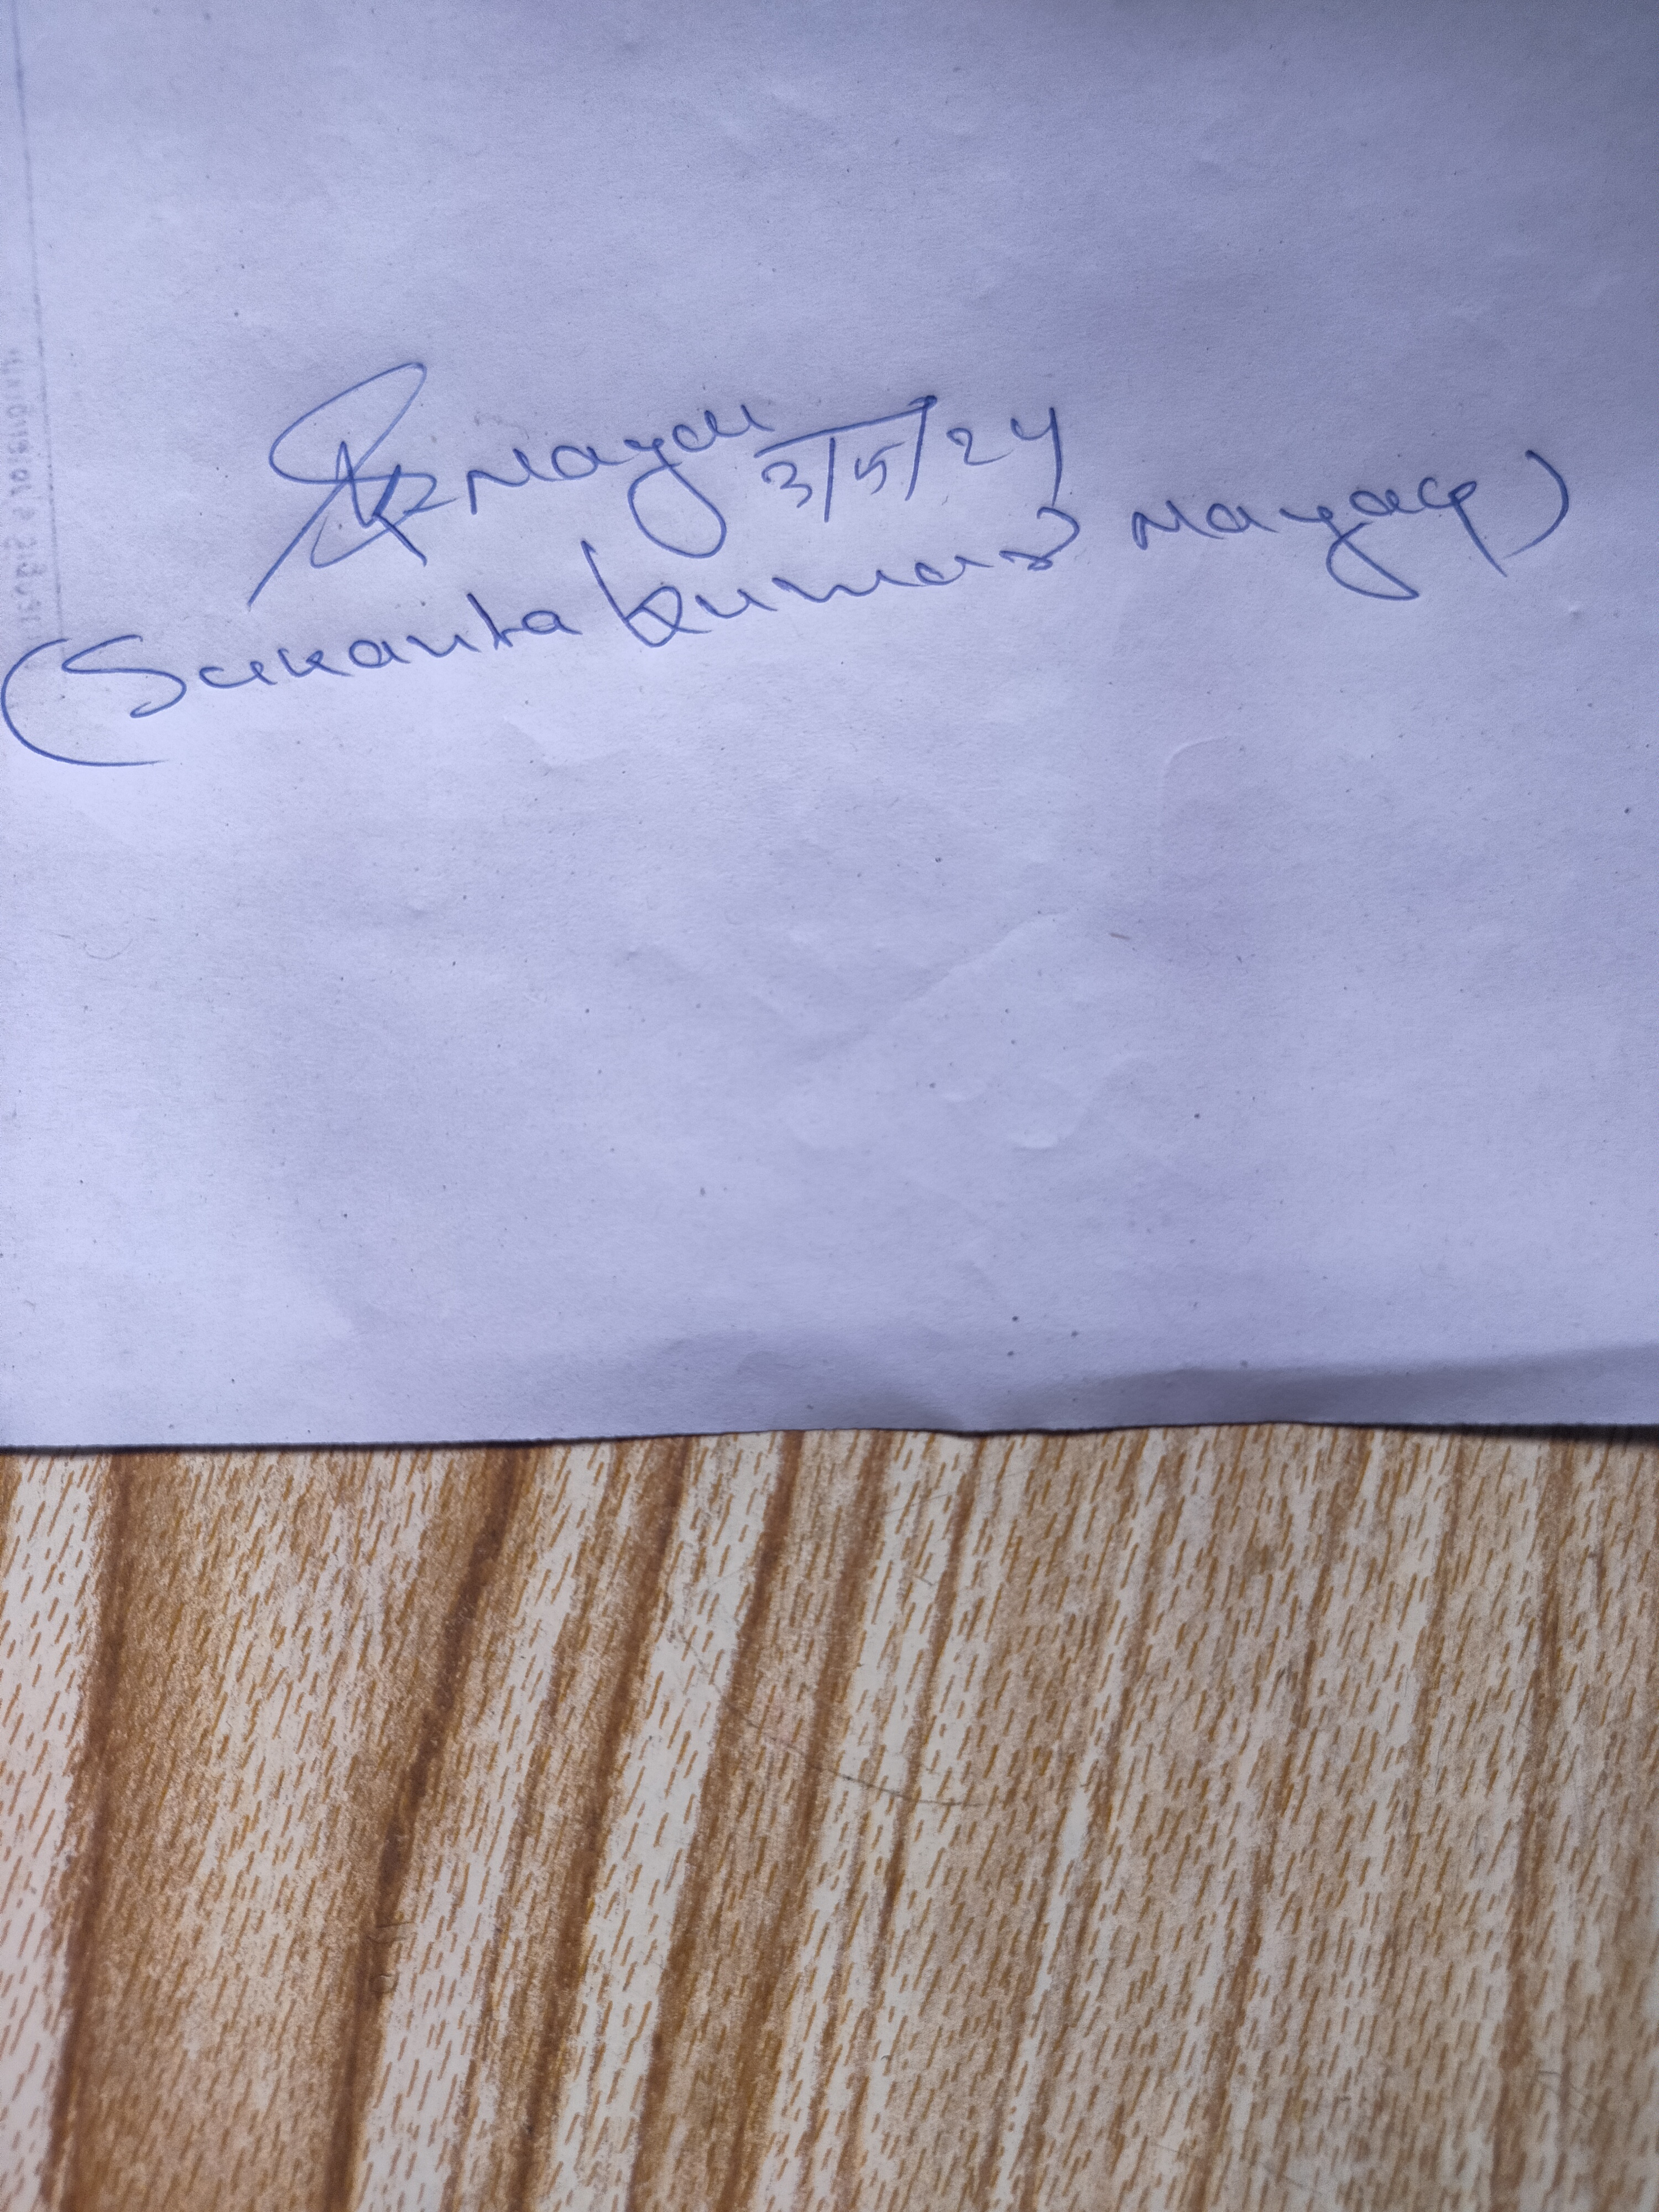 SKNayak 3/5/24
(Sukanta Kumar Nayak)